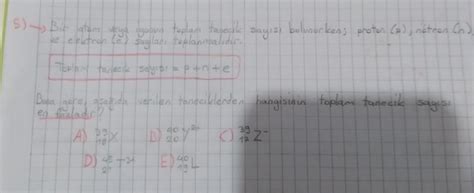 5) → Bir atom veya iyonun toplam tanecik sayısı bulunurken; proton (p), nötron (n)
ve elektron (e) sayıları toplanmalıdır.
Toplam tanecik sayısı = p + n + e
Buna göre, aşağıda verilen taneciklerden hangisinin toplam tanecik sayısı
en fazladır?
A) X B) 40 20 Y C) 39 Z⁻
D) E) 40 19 L